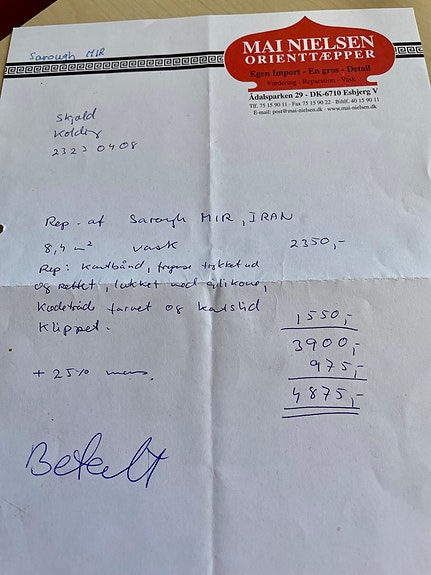 Sarough MIR
MAI NIELSEN
ORIENTTÆPPER
Egen Import - En gros - Detail
Vurdering - Reparation - Vask
Ådalsparken 29 - DK-6710 Esbjerg V
Tlf. 75 15 90 11 - Fax 75 15 90 22 - Biltlf. 40 15 90 11
E-mail: post@mai-nielsen.dk - www.mai-nielsen.dk
Skjold
Kolding
2323 0408
Rep. af Sarough MIR, IRAN
8,4 m² vask 2350,-
Rep: Kantbånd, trykket ud
og rettet, lukket med silikone,
farvet og
Klippet. 1550,-
3900,-
+ 25% moms 975,-
4875,-
Betalt